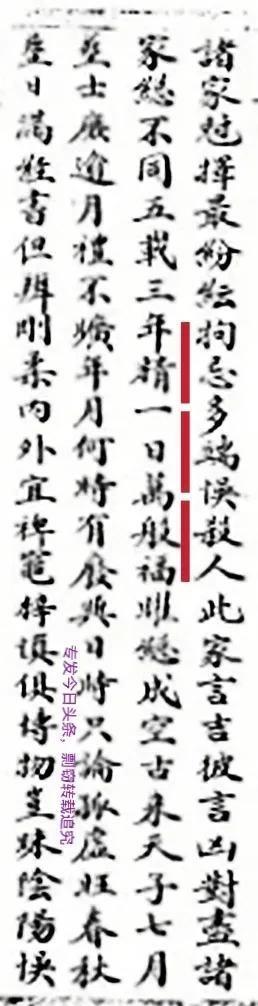 諸家尅擇最紛紜拘忌多端悞殺人此家言吉彼言凶對盡諸
家總不同五載三年精一日萬般福總成空古來天子七月
塟士庶逾月禮不曠年月何時有廢興日時只論孤虛旺春秋
塟日滿經書但辨剛柔內外宜裨竈梓慎俱博物豈昧陰陽悞
专发今日头条，剽窃转载追究